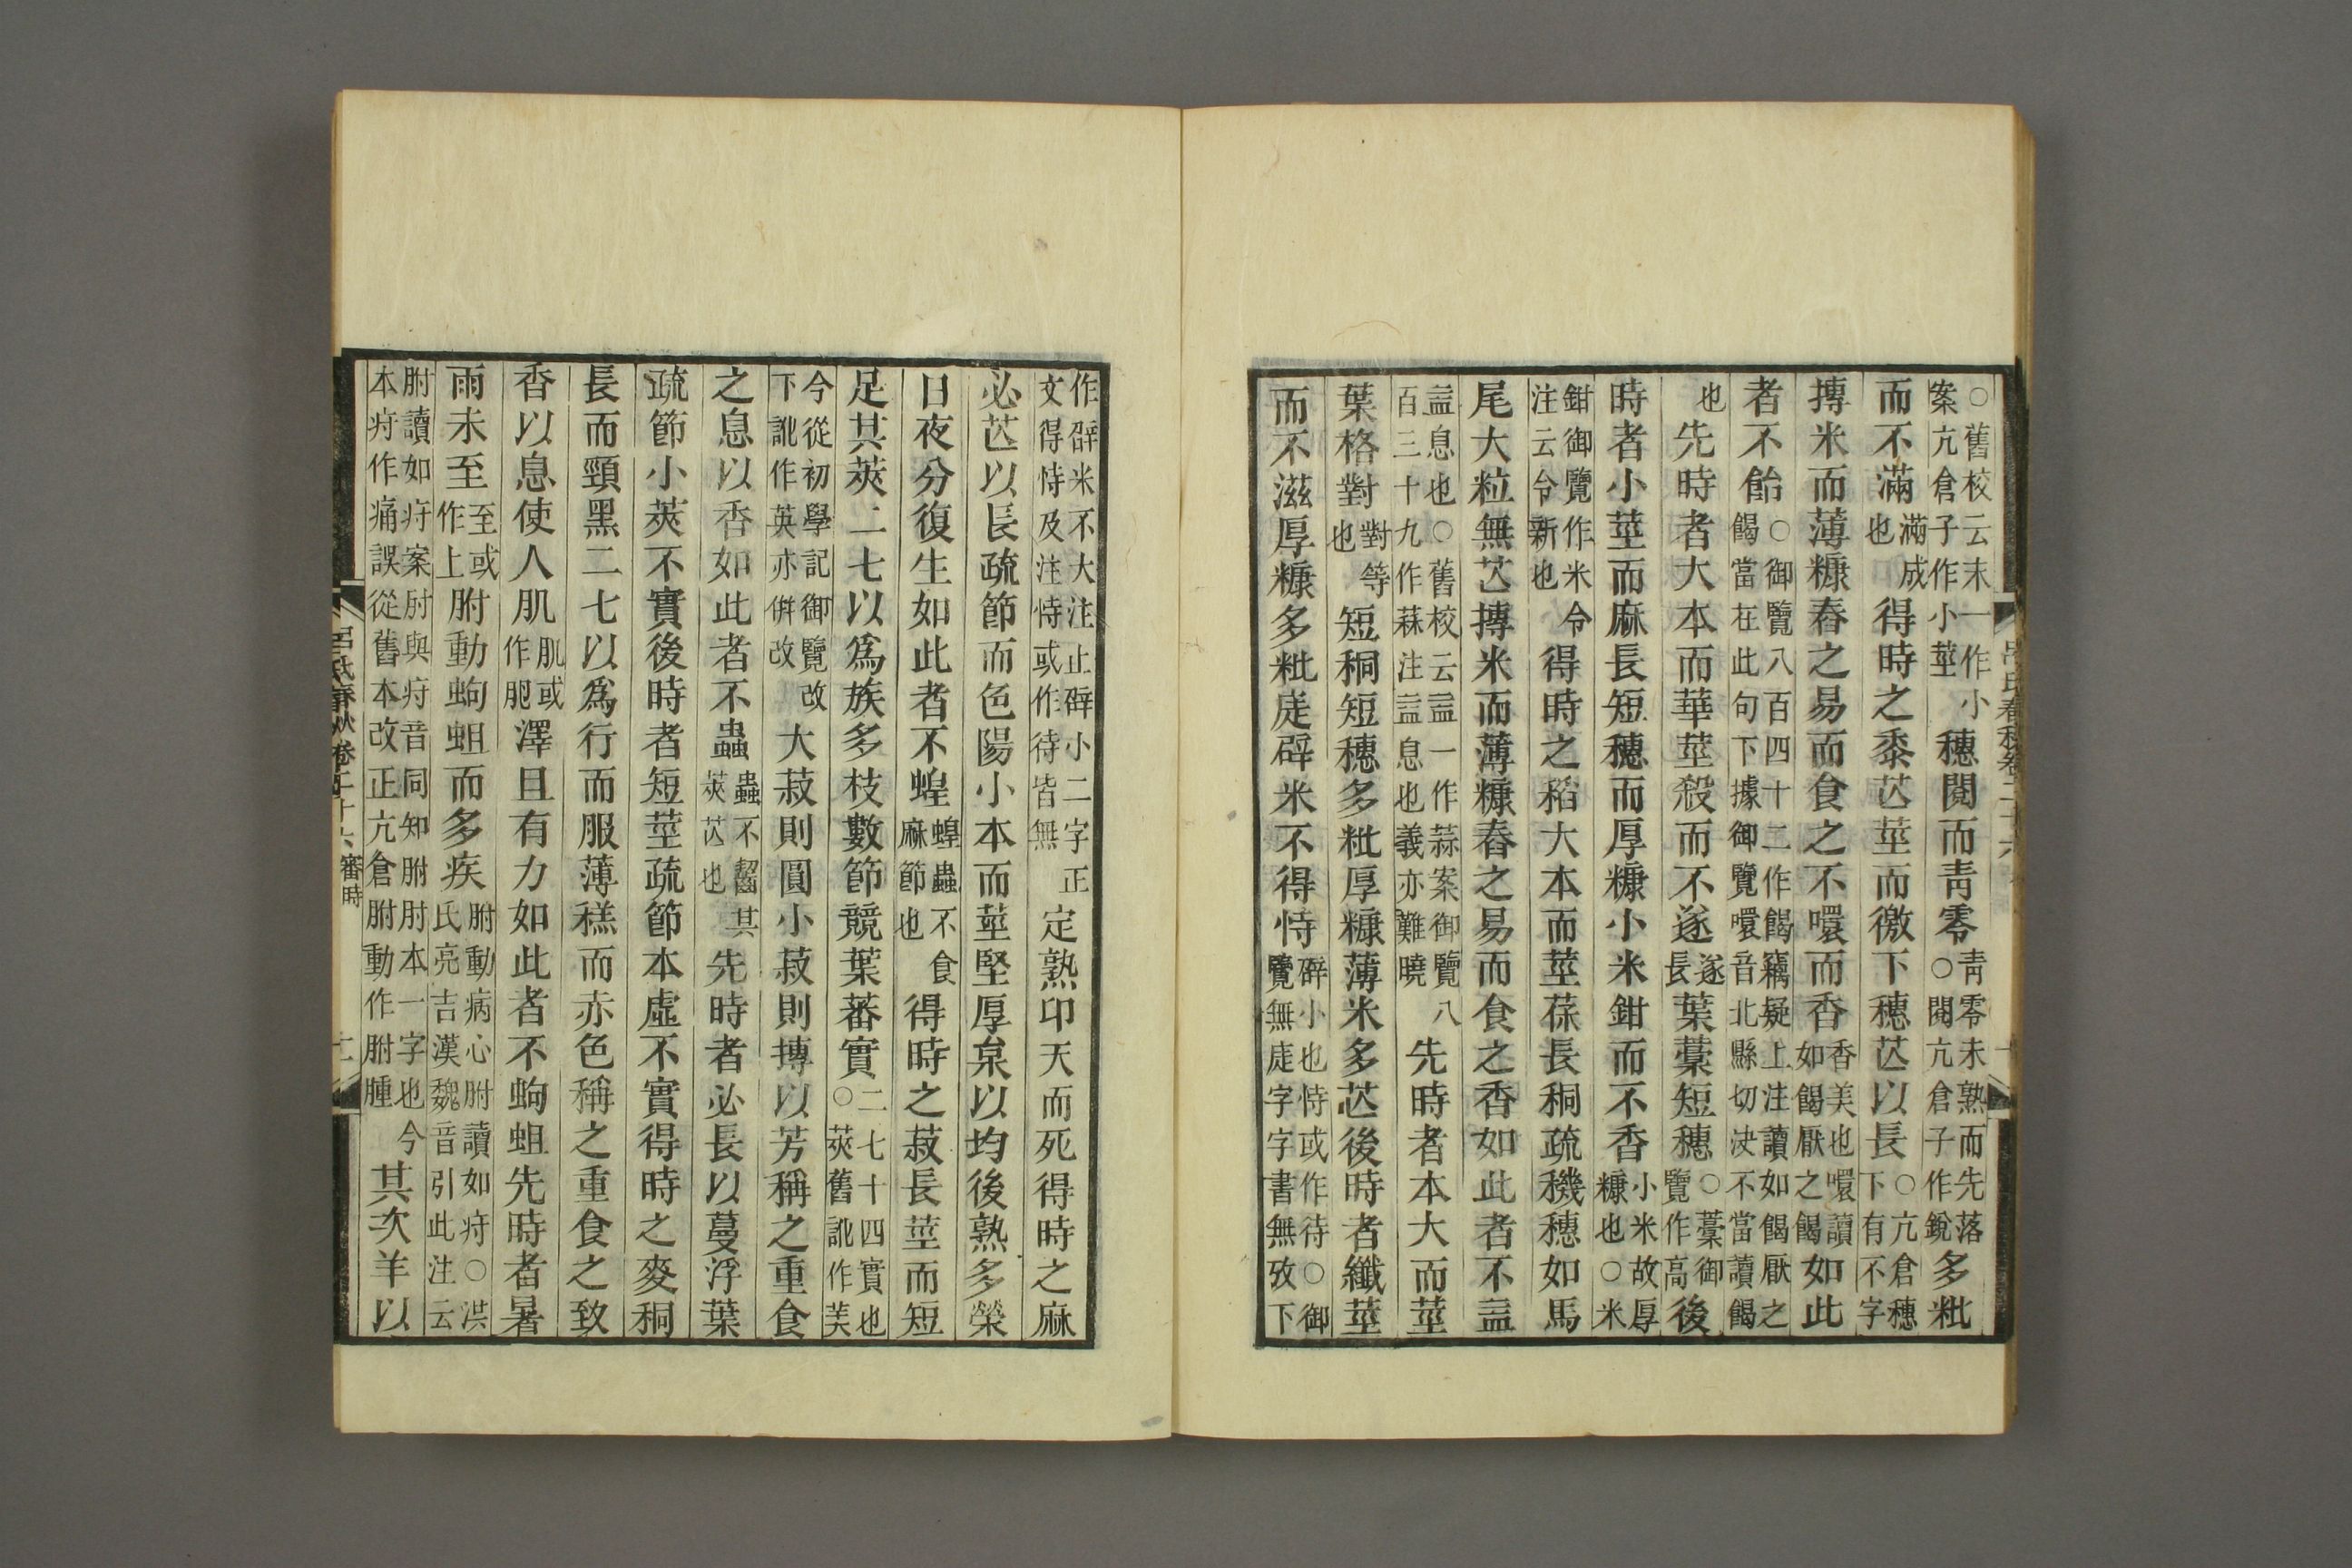 ○舊校云末一作小案亢倉子作小莖穗閱而青零青零未熟而先落○閱亢倉子作銳多粃
而不滿滿成也得時之黍芒莖而徼下穗芒以長○亢倉穗下有不字
摶米而薄糠舂之易而食之不噮而香香美也噮讀如餲厭之餲如此
者不飴○御覽八百四十二作餲竊疑上注讀如餲厭之餲當在此句下據御覽噮音北縣切決不當讀餲
也先時者大本而華莖殺而不遂遂長葉藁短穗○藁御覽作高後
時者小莖而麻長短穗而厚糠小米鉗而不香小米故厚糠也○米
鉗御覽作米令注云令新也得時之稻大本而莖葆長秱疏穖穗如馬
尾大粒無芒摶米而薄糠舂之易而食之香如此者不益
益息也○舊校云益一作蒜案御覽八百三十九作菻注益息也義亦難曉先時者本大而莖
葉格對對等也短秱短穗多粃厚糠薄米多芒後時者纖莖
而不滋厚糠多粃庣辟米不得恃辟小也恃或作待○御覽無庣字字書無攷下
作辟米不大注止辟小二字正文得恃及注恃或作待皆無定熟卬天而死得時之麻
必芒以長疏節而色陽小本而莖堅厚枲以均後熟多榮
日夜分復生如此者不蝗蝗蟲不食麻節也得時之菽長莖而短
足其莢二七以爲族多枝數節競葉蕃實二七十四實也○莢舊訛作芺
今從初學記御覽改下訛作英亦倂改大菽則圓小菽則摶以芳稱之重食
之息以香如此者不蟲蟲不齧其莢芒也先時者必長以蔓浮葉
疏節小莢不實後時者短莖疏節本虛不實得時之麥秱
長而頸黑二七以爲行而服薄糕而赤色稱之重食之致
香以息使人肌肌或作肥澤且有力如此者不蚼蛆先時者暑
雨未至至或作上胕動蚼蛆而多疾胕動病心胕讀如疛○洪氏亮吉漢魏音引此注云
胕讀如疛案肘與疛音同知胕肘本一字也今本疛作痛誤從舊本改正亢倉胕動作胕腫其次羊以
呂氏春秋卷二十六 審時 十一